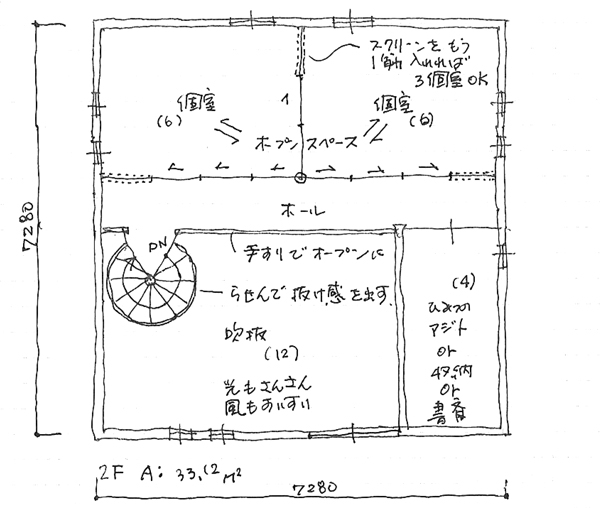 スクリーンをもう
1箇所入れれば
3個室OK
個室
(6)
個室
(6)
オープンスペース
ホール
DN
手すりでオープンに
らせんで抜け感を出す
吹抜
(12)
光もさんさん
風もすいすい
(4)
ひみつの
アジト
or
収納
or
書斎
7280
2F A: 33.12 M2
7280